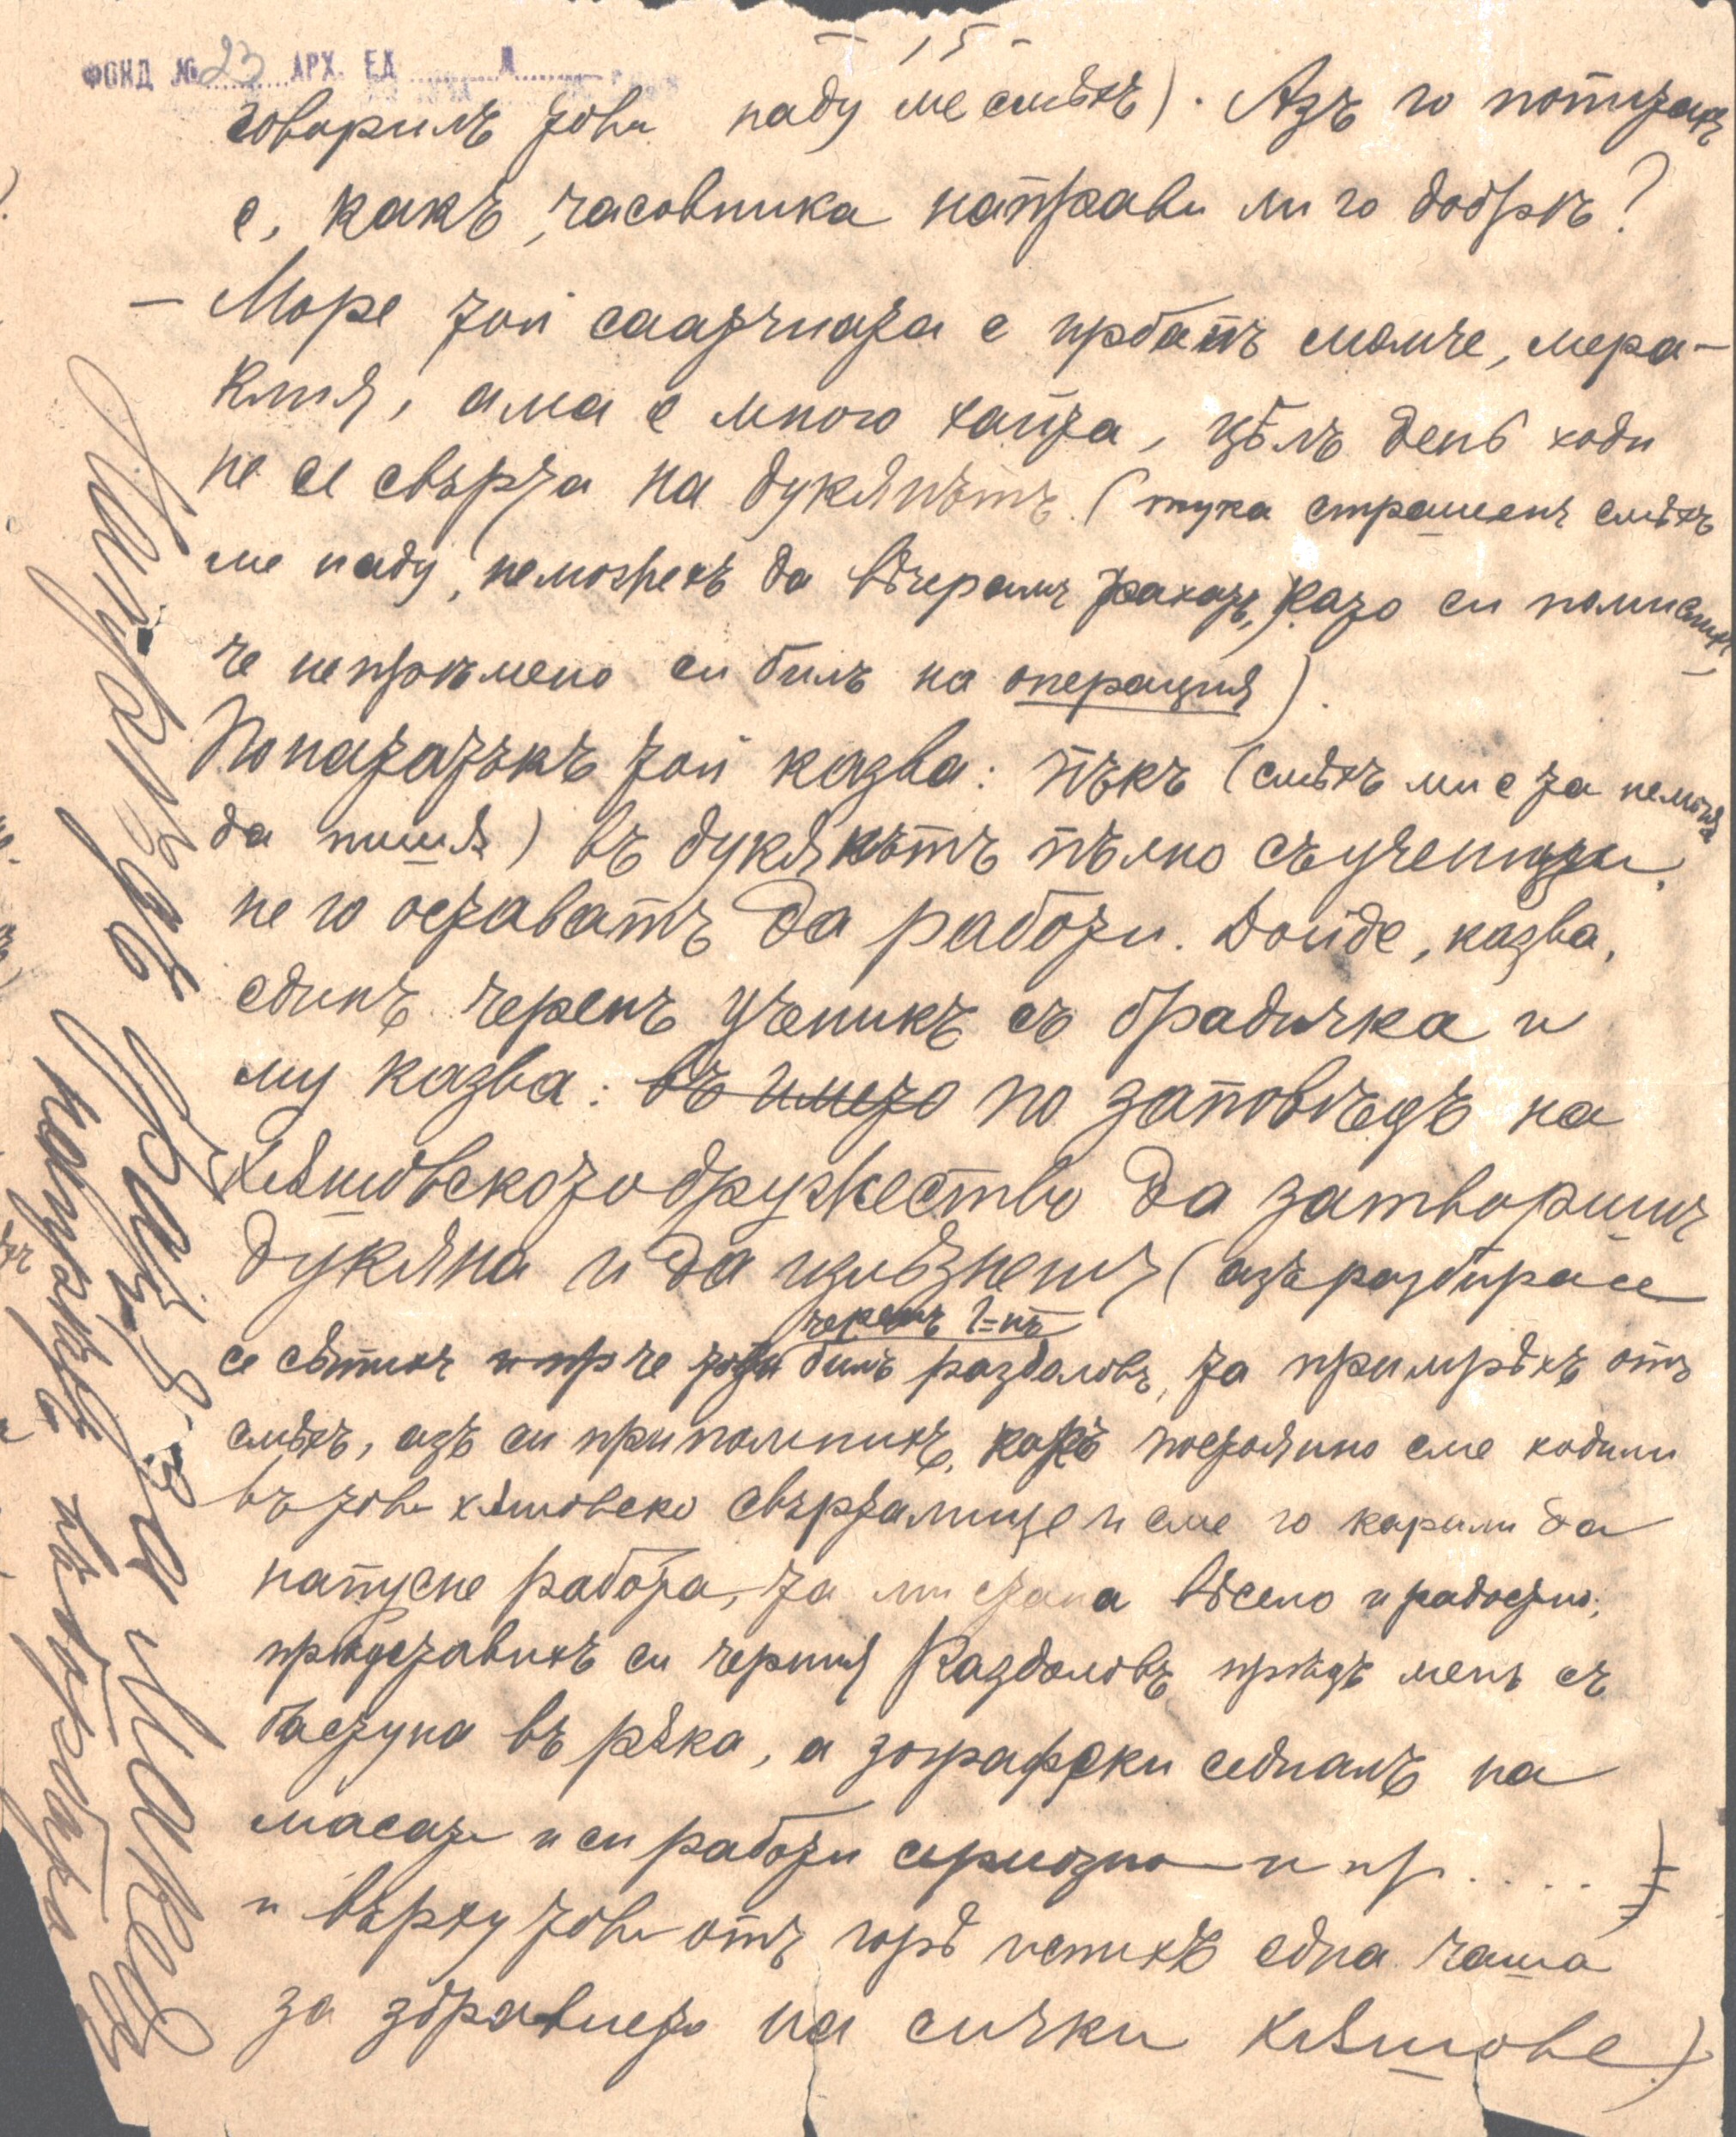 - 15 -
ФОНД № 23 АРХ. ЕД
говорилъ това паду ме смѣхъ). Азъ го попитахъ
е, какъ, часовника направи ли го добрѣ?
— Море той саатчията е ербапъ момче, мера-
клия, ама е много хайта, цѣлъ день ходи
не се свърта на дукянътъ. (тука страшенъ смѣхъ
ме паду, неможехъ да вѣчерамъ рахатъ, като си помислихъ,
че непрѣмено си билъ на операция).
Понататъкъ той казва: пъкъ (смѣхъ ми е та немога
да пишѫ) въ дукянътъ пълно съ ученици,
не го оставатъ да работи. Дойде, казва,
единъ черенъ ученикъ съ брадичка и
му казва: въ името по заповѣдь на
хѫшовското дружество да затворишъ
дукяна и да излѣзнешъ (азъ разбира се
черенъ г-нъ
се сѣтихъ и пр че този билъ раздоловъ, та примрѣхъ отъ
смѣхъ, азъ си припомнихъ, какъ постоянно сме ходили
въ това хѫшовско свърталище и сме го карали да
напусне работа, та ми стана вѣсело и радостно,
прѣдставихъ си черния Раздоловъ прѣдъ менъ съ
бастуна въ рѫка, а зографски седналъ на
масата и си работи сериозно и пр. . . . .)
и върху това отъ горѣ испихъ една чаша
за здравието на сички хѫшове)